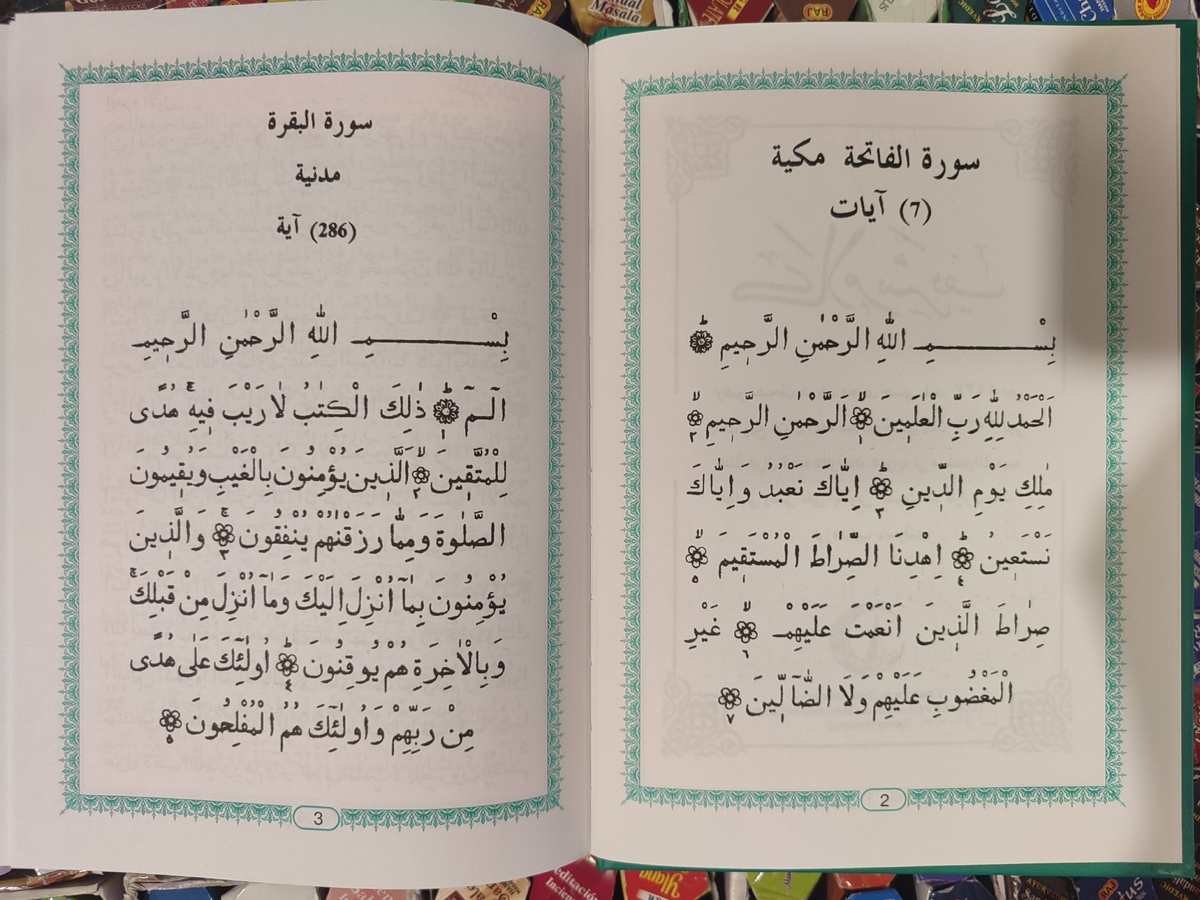 سورة الفاتحة مكية
(7) آيات
بِسْـــــــمِ اللّٰهِ الرَّحْمٰنِ الرَّحِيْمِ ۙ
اَلْحَمْدُ لِلّٰهِ رَبِّ الْعٰلَمِيْنَ ١ۙ الرَّحْمٰنِ الرَّحِيْمِ ٢ۙ
مٰلِكِ يَوْمِ الدِّيْنِ ٣ؕ اِيَّاكَ نَعْبُدُ وَاِيَّاكَ
نَسْتَعِيْنُ ٤ؕ اِهْدِنَا الصِّرَاطَ الْمُسْتَقِيْمَ ٥ۙ
صِرَاطَ الَّذِيْنَ اَنْعَمْتَ عَلَيْهِمْ ٦ۙ غَيْرِ
الْمَغْضُوْبِ عَلَيْهِمْ وَلَا الضَّآلِّيْنَ ٧
2
سورة البقرة
مدنية
(286) آية
بِسْـــــــمِ اللّٰهِ الرَّحْمٰنِ الرَّحِيْمِ
الٓـمّٓ ١ؕ ذٰلِكَ الْكِتٰبُ لَا رَيْبَ فِيْهِ ۚ هُدًى
لِّلْمُتَّقِيْنَ ٢ۙ الَّذِيْنَ يُؤْمِنُوْنَ بِالْغَيْبِ وَيُقِيْمُوْنَ
الصَّلٰوةَ وَمِمَّا رَزَقْنٰهُمْ يُنْفِقُوْنَ ٣ۚ وَالَّذِيْنَ
يُؤْمِنُوْنَ بِمَآ اُنْزِلَ اِلَيْكَ وَمَآ اُنْزِلَ مِنْ قَبْلِكَ ۚ
وَبِالْاٰخِرَةِ هُمْ يُوْقِنُوْنَ ٤ؕ اُولٰٓئِكَ عَلٰى هُدًى
مِّنْ رَّبِّهِمْ وَاُولٰٓئِكَ هُمُ الْمُفْلِحُوْنَ ٥
3
Masala
RAJ
RAJ
ylang
RAJ